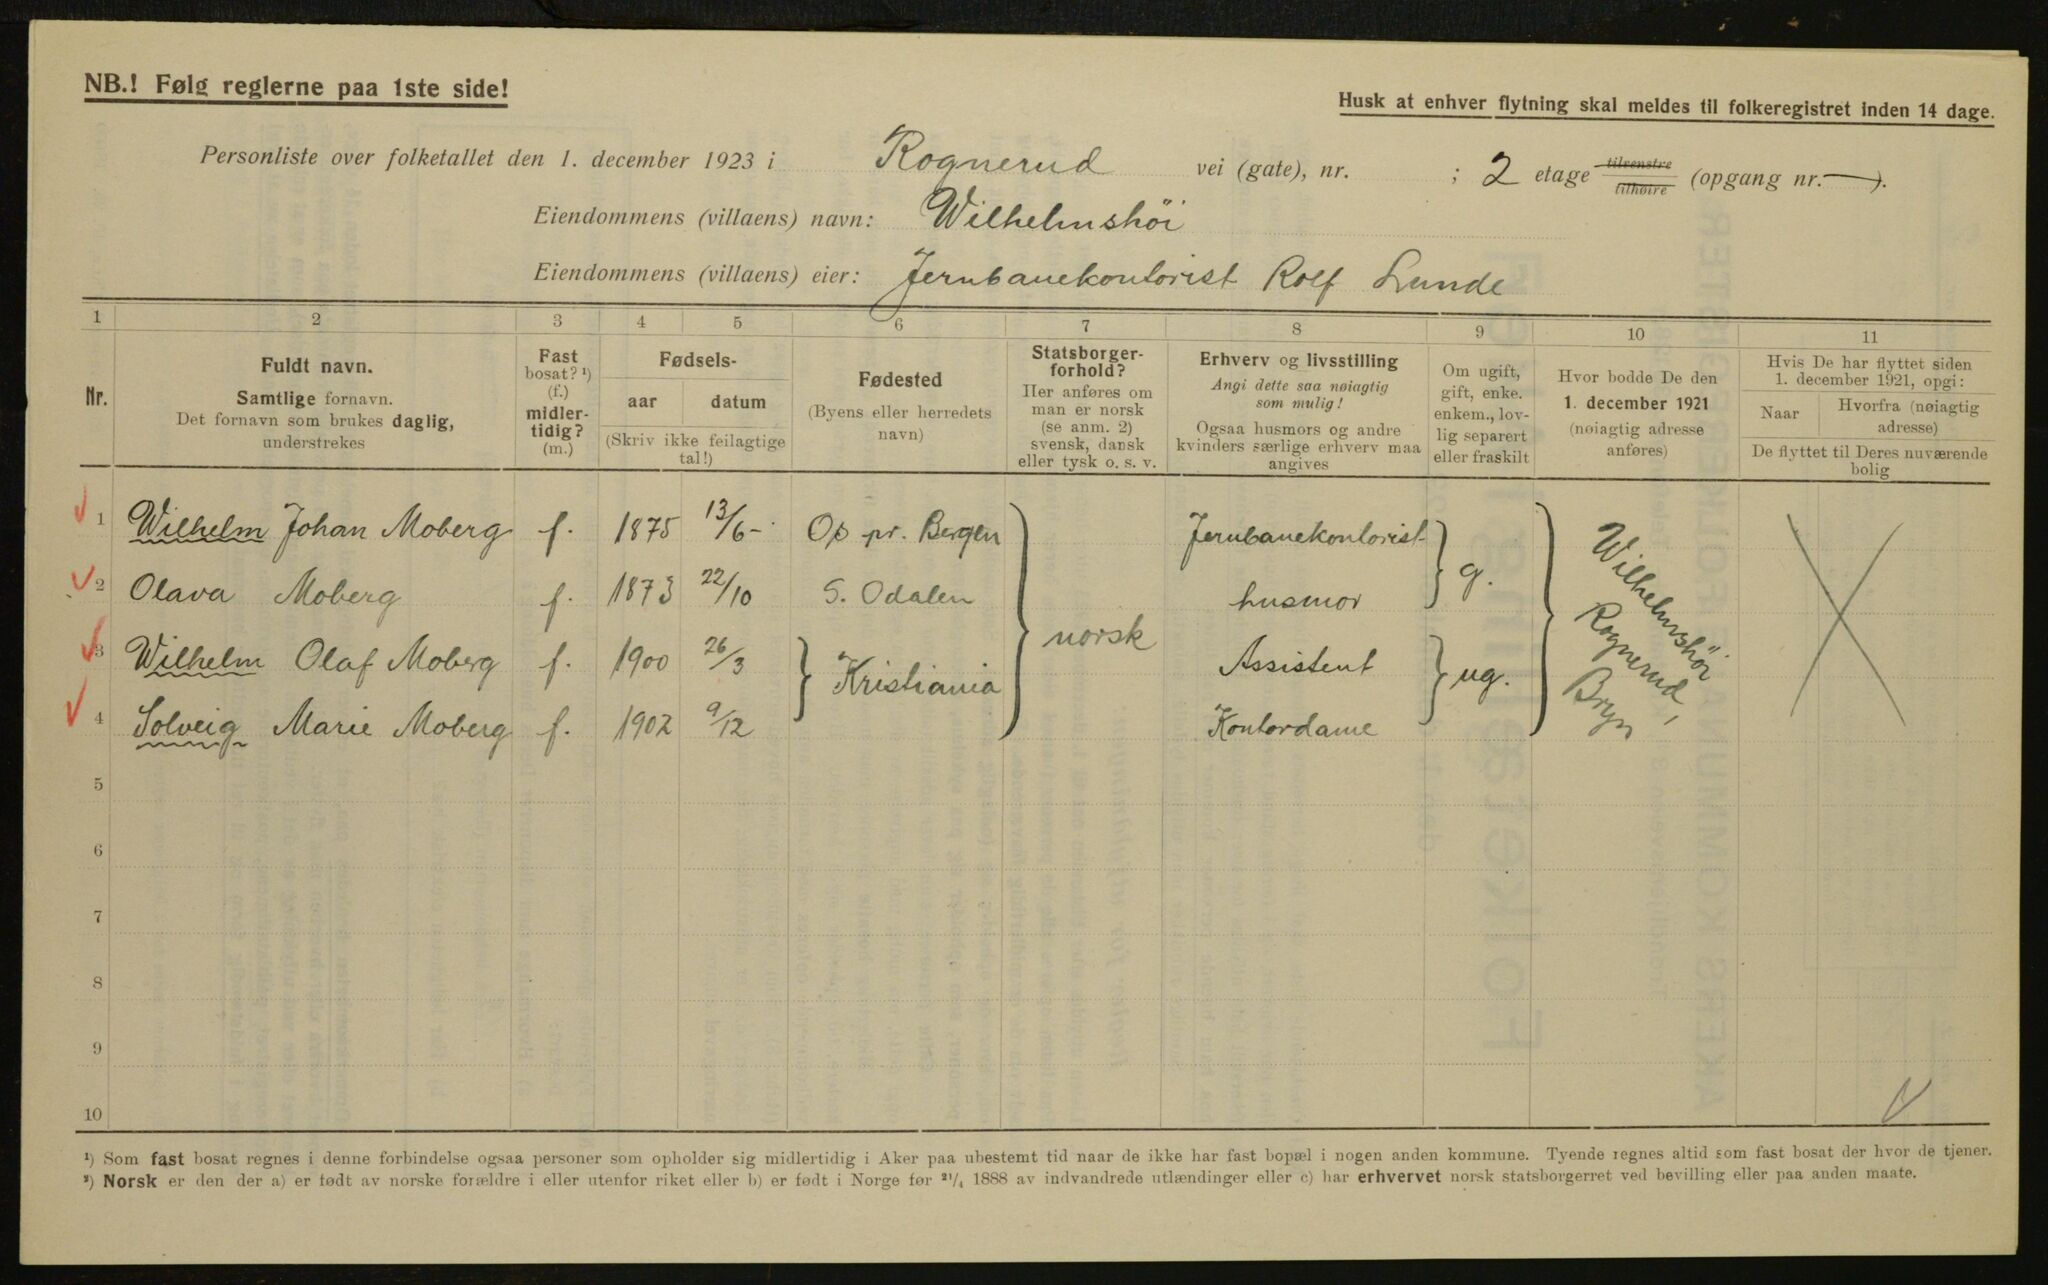 NB.! Følg reglerne paa 1ste side!
Husk at enhver flytning skal meldes til folkeregistret inden 14 dage.
Personliste over folketallet den 1. december 1923 i Rognerud vei (gate), nr. ; 2 etage tilvenstre tilhøire (opgang nr. —).
Eiendommens (villaens) navn: Wilhelmshöi
Eiendommens (villaens) eier: Jernbanekontorist Rolf Lunde
1 2 3 4 5 6 7 8 9 10 11
Nr.
Fuldt navn.
Samtlige fornavn.
Det fornavn som brukes daglig,
understrekes
Fast
bosat? ¹)
(f.)
midler-
tidig?
(m.)
Fødsels-
aar datum
(Skriv ikke feilagtige
tal!)
Fødested
(Byens eller herredets
navn)
Statsborger-
forhold?
Her anføres om
man er norsk
(se anm. 2)
svensk, dansk
eller tysk o. s. v.
Erhverv og livsstilling
Angi dette saa nøiagtig
som mulig!
Ogsaa husmors og andre
kvinders særlige erhverv maa
angives
Om ugift,
gift, enke.
enkem., lov-
lig separert
eller fraskilt
Hvor bodde De den
1. december 1921
(nøiagtig adresse
anføres)
Hvis De har flyttet siden
1. december 1921, opgi:
Naar Hvorfra (nøiagtig
adresse)
De flyttet til Deres nuværende
bolig
1 Wilhelm Johan Moberg f. 1875 13/6- Os pr. Bergen Jernbanekontorist
2 Olava Moberg f. 1873 22/10 S. Odalen husmor g.
norsk
3 Wilhelm Olaf Moberg f. 1900 26/3 Kristiania Assistent ug.
4 Solveig Marie Moberg f. 1902 9/12 Kontordame
Wilhelmshöi
Rognerud,
Bryn
5
6
7
8
9
10
¹) Som fast bosat regnes i denne forbindelse ogsaa personer som opholder sig midlertidig i Aker paa ubestemt tid naar de ikke har fast bopæl i nogen anden kommune. Tyende regnes altid som fast bosat der hvor de tjener.
²) Norsk er den der a) er født av norske forældre i eller utenfor riket eller b) er født i Norge før ²¹/₄ 1888 av indvandrede utlændinger eller c) har erhvervet norsk statsborgerret ved bevilling eller paa anden maate.